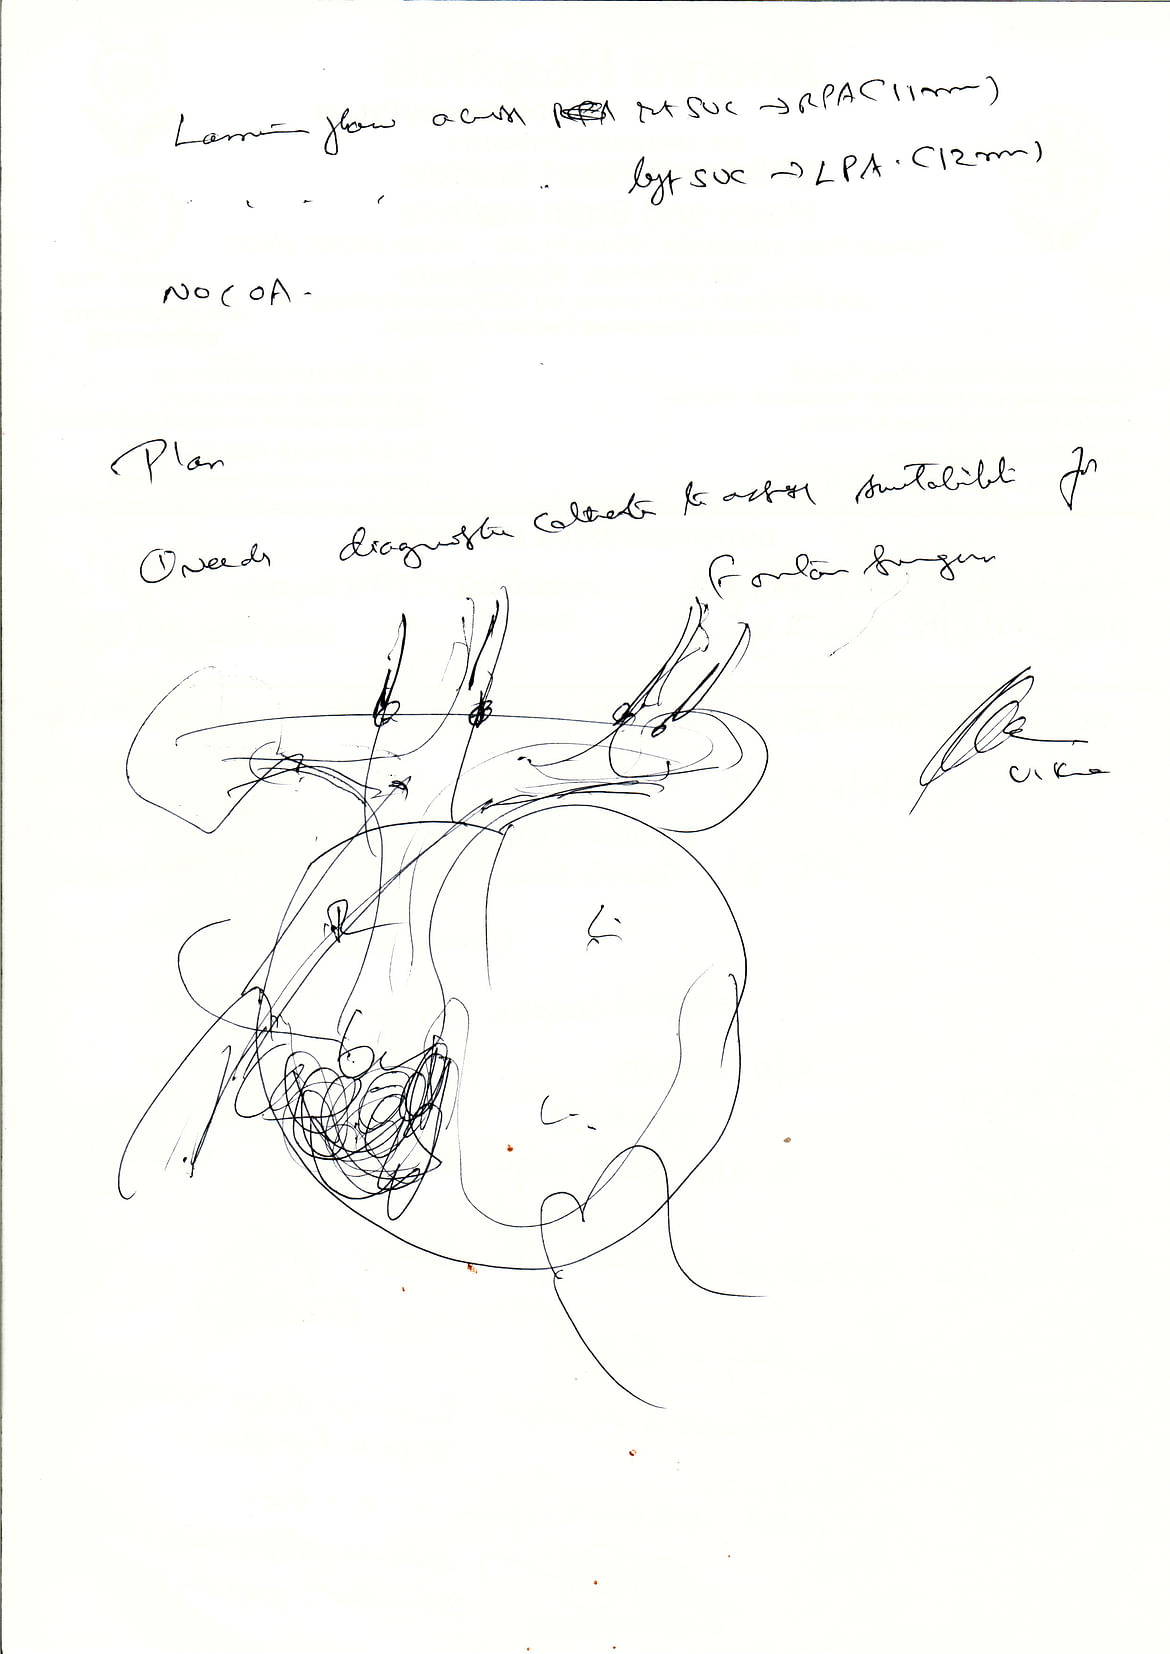 Laminar flow across rt SVC → RPA (11mm)
left SVC → LPA. (12mm)
NO COA.
Plan
① needs diagnostic catheter to assess suitability for
Fontan surgery